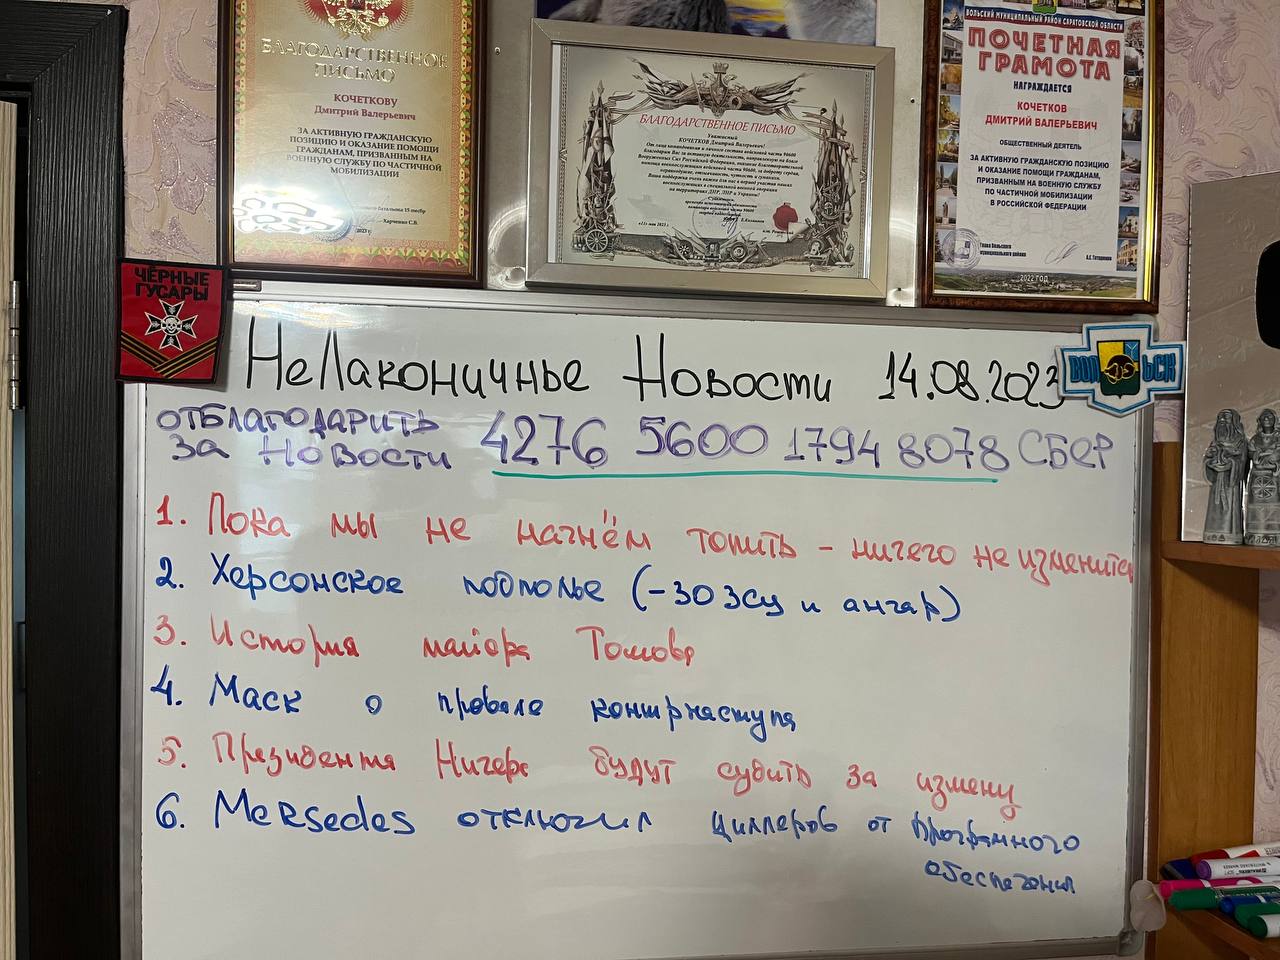 БЛАГОДАРСТВЕННОЕ
ПИСЬМО
КОЧЕТКОВУ
Дмитрий Валерьевич
ЗА АКТИВНУЮ ГРАЖДАНСКУЮ
ПОЗИЦИЮ И ОКАЗАНИЕ ПОМОЩИ
ГРАЖДАНАМ, ПРИЗВАННЫМ НА
ВОЕННУЮ СЛУЖБУ ПО ЧАСТИЧНОЙ
МОБИЛИЗАЦИИ
Харченко С.В.
2023 г.
БЛАГОДАРСТВЕННОЕ ПИСЬМО
Уважаемый
КОЧЕТКОВ Дмитрий Валерьевич!
От лица командования и личного состава войсковой части 90600
ВОЛЬСКИЙ МУНИЦИПАЛЬНЫЙ РАЙОН САРАТОВСКОЙ ОБЛАСТИ
ПОЧЕТНАЯ
ГРАМОТА
НАГРАЖДАЕТСЯ
КОЧЕТКОВ
ДМИТРИЙ ВАЛЕРЬЕВИЧ
ОБЩЕСТВЕННЫЙ ДЕЯТЕЛЬ
ЗА АКТИВНУЮ ГРАЖДАНСКУЮ ПОЗИЦИЮ
И ОКАЗАНИЕ ПОМОЩИ ГРАЖДАНАМ,
ПРИЗВАННЫМ НА ВОЕННУЮ СЛУЖБУ
ПО ЧАСТИЧНОЙ МОБИЛИЗАЦИИ
В РОССИЙСКОЙ ФЕДЕРАЦИИ
Глава Вольского
муниципального района
2022 ГОД
ЧЁРНЫЕ
ГУСАРЫ
ВОЛЬСК
НеЛаконичнье Новости 14.08.2023
ОТБЛАГОДАРИТЬ
ЗА НОВОСТИ 4276 5600 1794 8078 СБЕР
1. Пока мы не начнём топить - ничего не изменится
2. Херсонское подполье (-30 ЗСУ и ангар)
3. История майора Томова
4. Маск о провале контрнаступа
5. Президента Нигера будут судить за измену
6. Mersedes отключил дилеров от программного
обеспечения